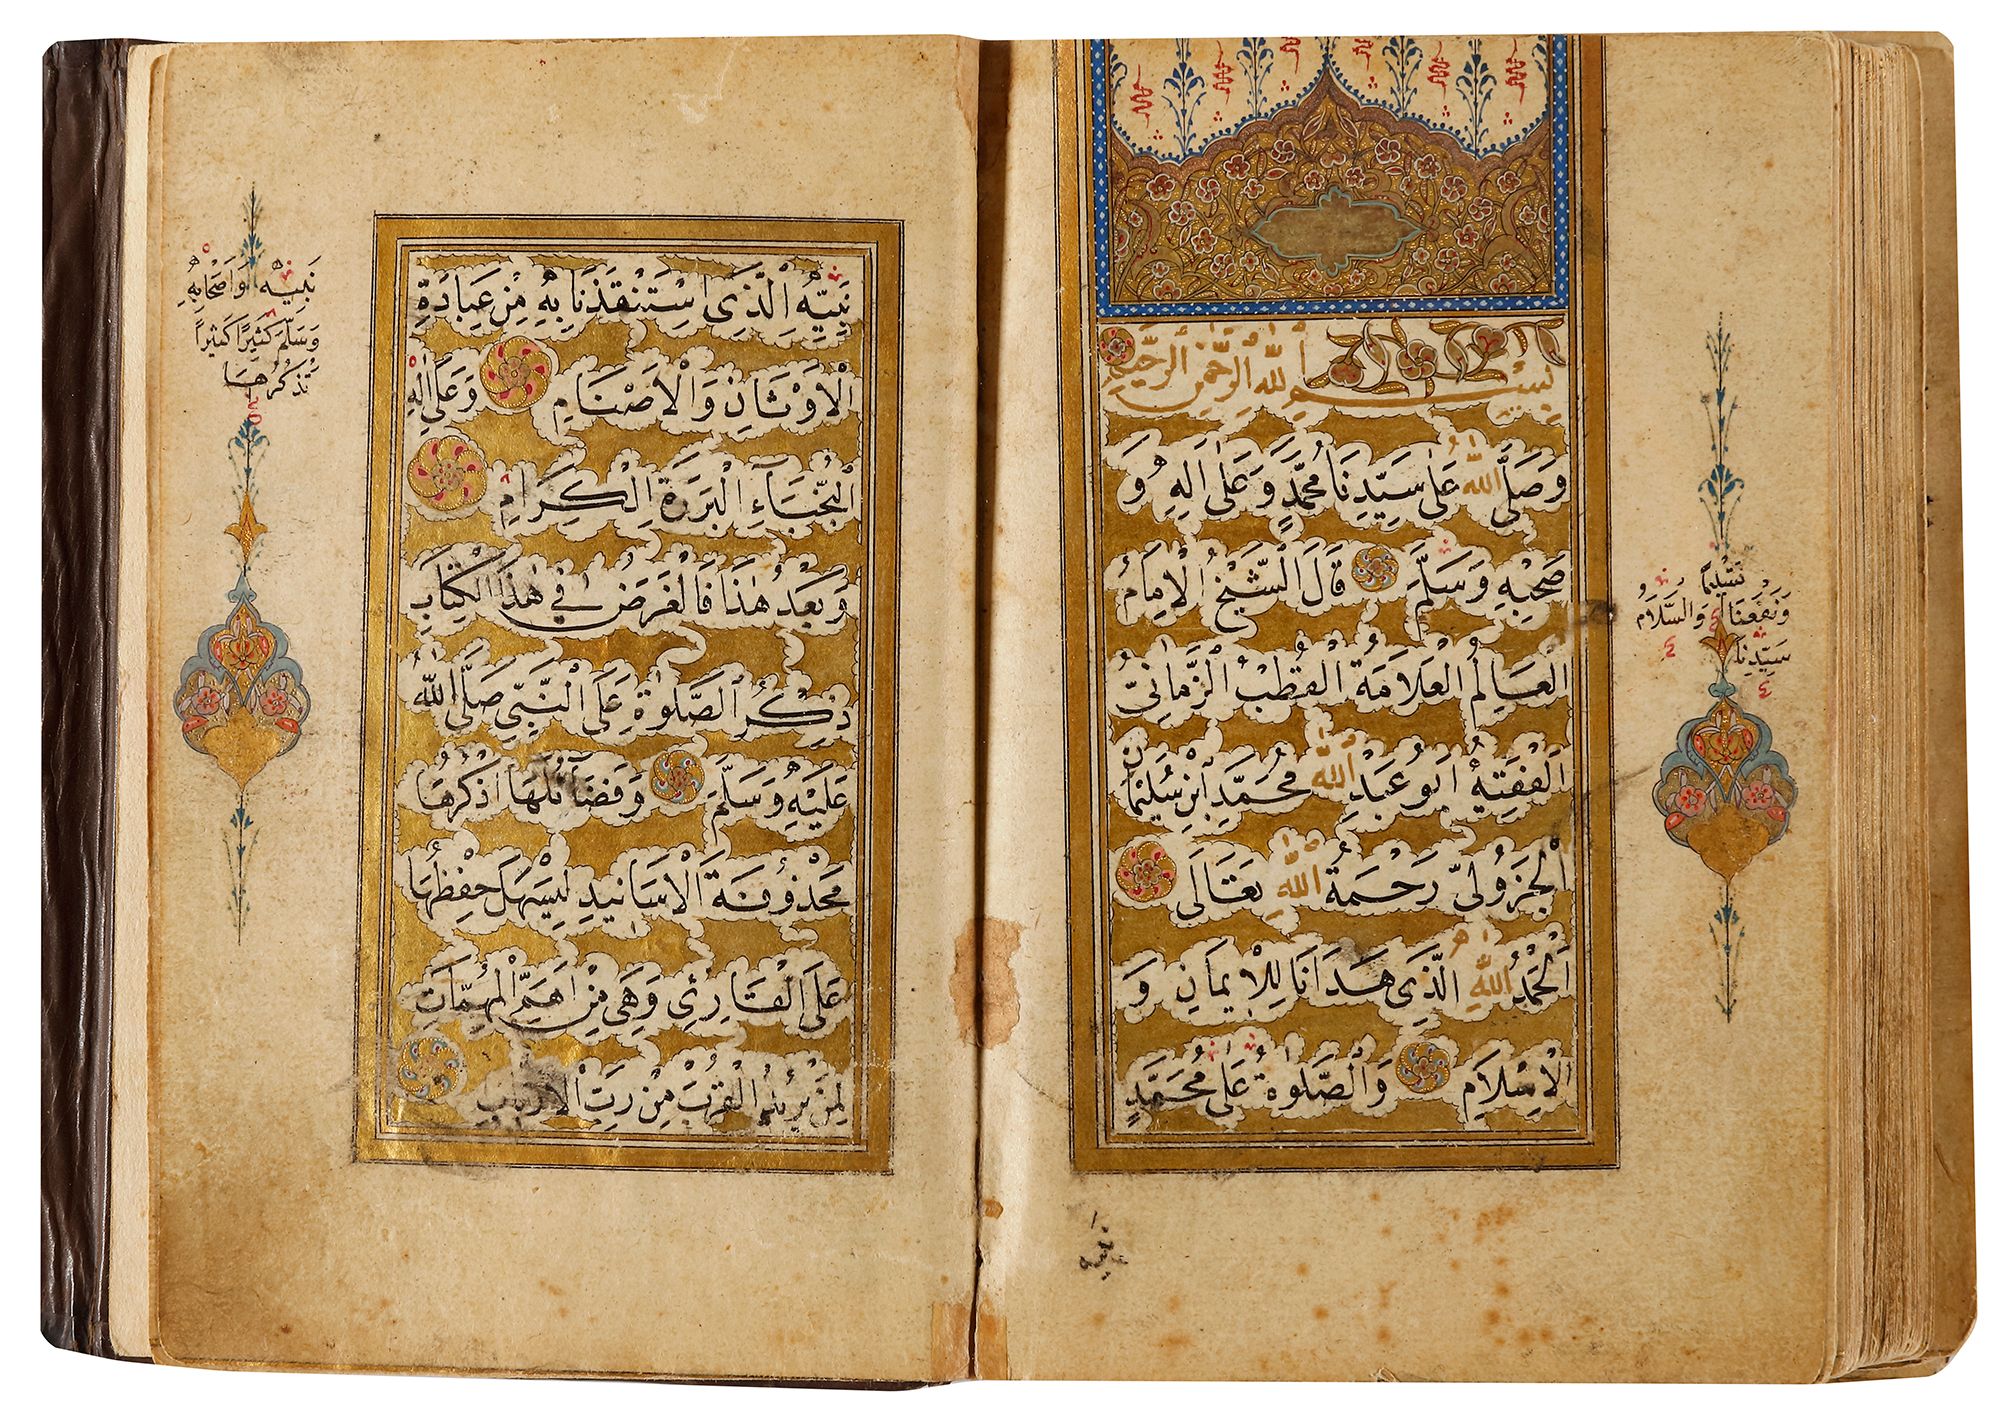 بِسْمِ اللهِ الرَّحْمٰنِ الرَّحِيمِ
وَصَلَّى اللهُ عَلٰى سَيِّدِنَا مُحَمَّدٍ وَعَلٰى اٰلِهِ وَ
صَحْبِهِ وَسَلَّمَ قَالَ الشَّيْخُ الْاِمَامُ
الْعَالِمُ الْعَلَامَةُ الْقُطْبُ الزَّمَانِيُّ
الْفَقِيهُ اَبُو عَبْدِ اللهِ مُحَمَّدِ ابْنِ سُلَيْمَانَ
الْجَزُولِيّ رَحْمَةُ اللهِ تَعَالَى
اَلْحَمْدُ لِلّٰهِ الَّذِي هَدَانَا لِلْاِيمَانِ وَ
الْاِسْلَامِ وَالصَّلٰوةُ عَلٰى مُحَمَّدٍ
تَسْلِيمًا
وَنَفَعَنَا وَالسَّلَامُ
سَيِّدِنَا
نبيه
نَبِيِّهِ الَّذِي اسْتَنْقَذَنَا بِهِ مِنْ عِبَادَةِ
الْاَوْثَانِ وَالْاَصْنَامِ وَعَلٰى اٰلِهِ
النُّجَبَآءِ الْبَرَرَةِ الْكِرَامِ
وَبَعْدُ هٰذَا فَالْغَرَضُ فِي هٰذَا الْكِتَابِ
ذِكْرُ الصَّلٰوةِ عَلَى النَّبِيِّ صَلَّى اللهُ
عَلَيْهِ وَسَلَّمَ وَفَضَآئِلُهَا اَذْكُرُهَا
مَحْذُوفَةَ الْاَسَانِيدِ لِيَسْهُلَ حِفْظُهَا
عَلَى الْقَارِئِ وَهِيَ مِنْ اَهَمِّ الْمُهِمَّاتِ
لِمَنْ يُرِيدُ الْقُرْبَ مِنْ رَبِّ الْاَرْبَابِ
نَبِيِّهِ وَاَصْحَابِهِ
وَسَلَّمَ كَثِيرًا كَثِيرًا
نَذْكُرُهَا